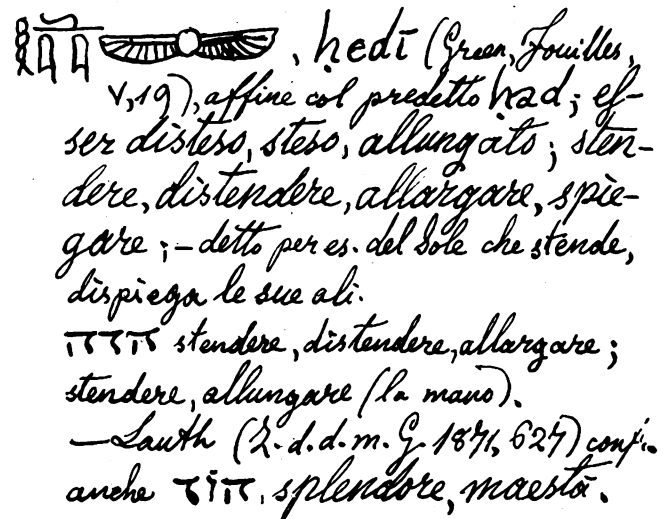 , ḥedī (Green, Fouilles,
V, 19), affine col predetto ḥad; es-
ser disteso, steso, allungato; sten-
dere, distendere, allargare, spie-
gare; – detto per es. del Sole che stende,
dispiega le sue ali.
הדה stendere, distendere, allargare;
stendere, allungare (la mano).
— Lauth (Z. d. d. m. G. 1871, 627) conf.
anche הוֹד, splendore, maestà.